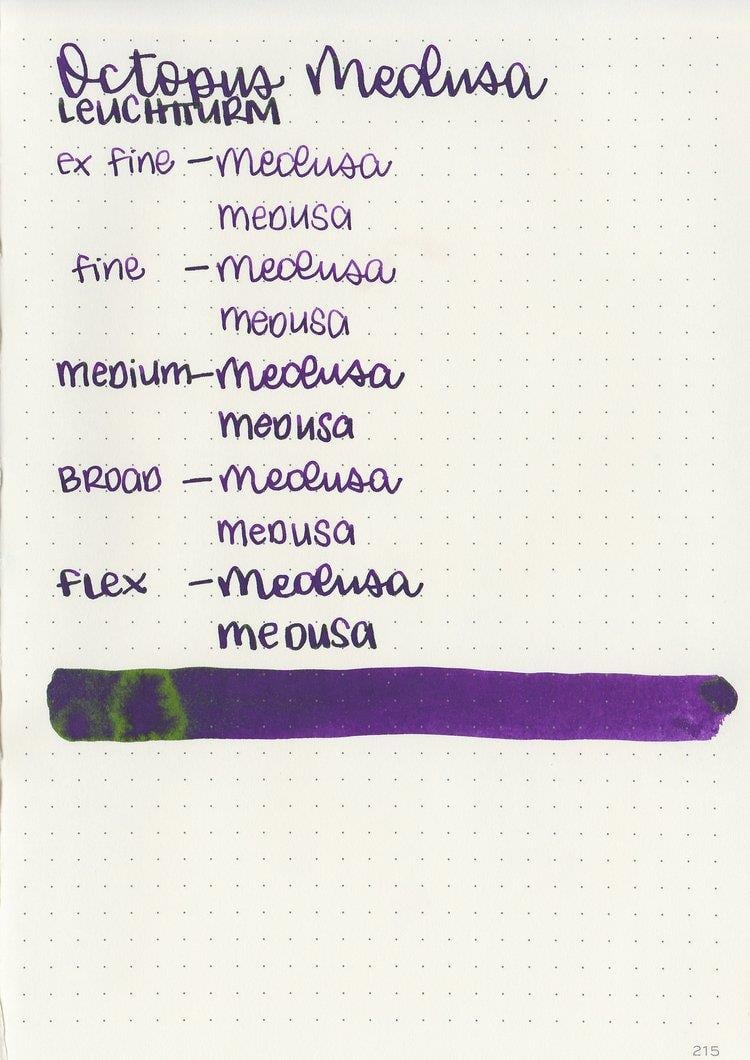 Octopus Medusa
LEUCHTTURM
ex fine - Medusa
MEDUSA
fine - Medusa
MEDUSA
MEDIUM - Medusa
MEDUSA
BROAD - Medusa
MEDUSA
FLEX - Medusa
MEDUSA
215